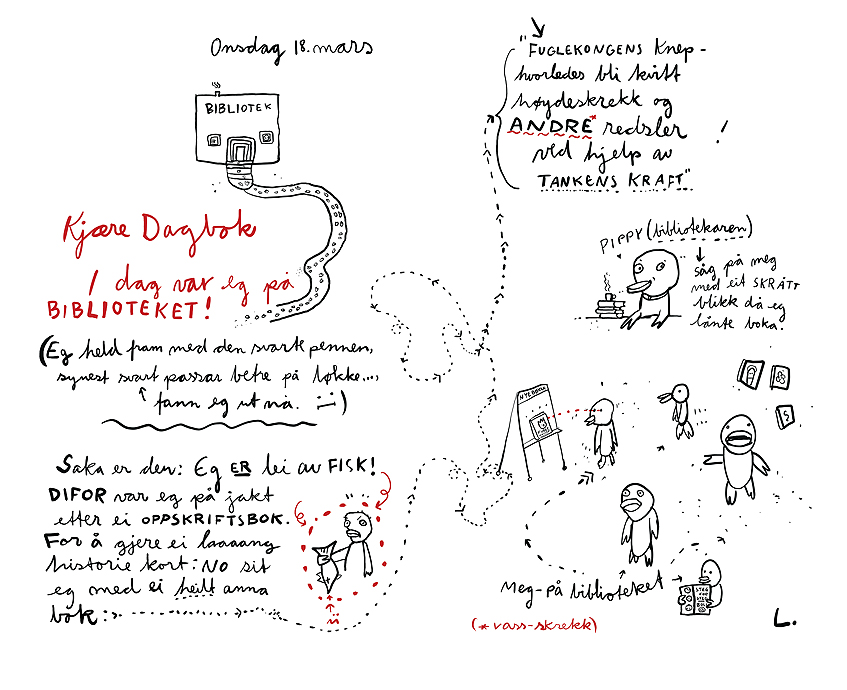 Onsdag 18. mars
BIBLIOTEK
Kjære Dagbok
I dag var eg på
BIBLIOTEKET!
(Eg held fram med den svarte pennen,
synest svart passar betre på løkke...,
fann eg ut nå. :-|)
Saka er den: Eg ER lei av FISK!
DIFOR var eg på jakt
etter ei OPPSKRIFTSBOK.
For å gjere ei laaaang
historie kort: No sit
eg med ei heilt anna
bok:
"FUGLEKONGENS Knep -
hvorledes bli kvitt
høydeskrekk og
ANDRE* redsler !
ved hjelp av
TANKENS KRAFT"
PIPPY (bibliotekaren)
såg på meg
med eit SKRÅTT
blikk då eg
lånte boka.
NYE BØKER
Meg-på biblioteket
(*vass-skrekk)
L.